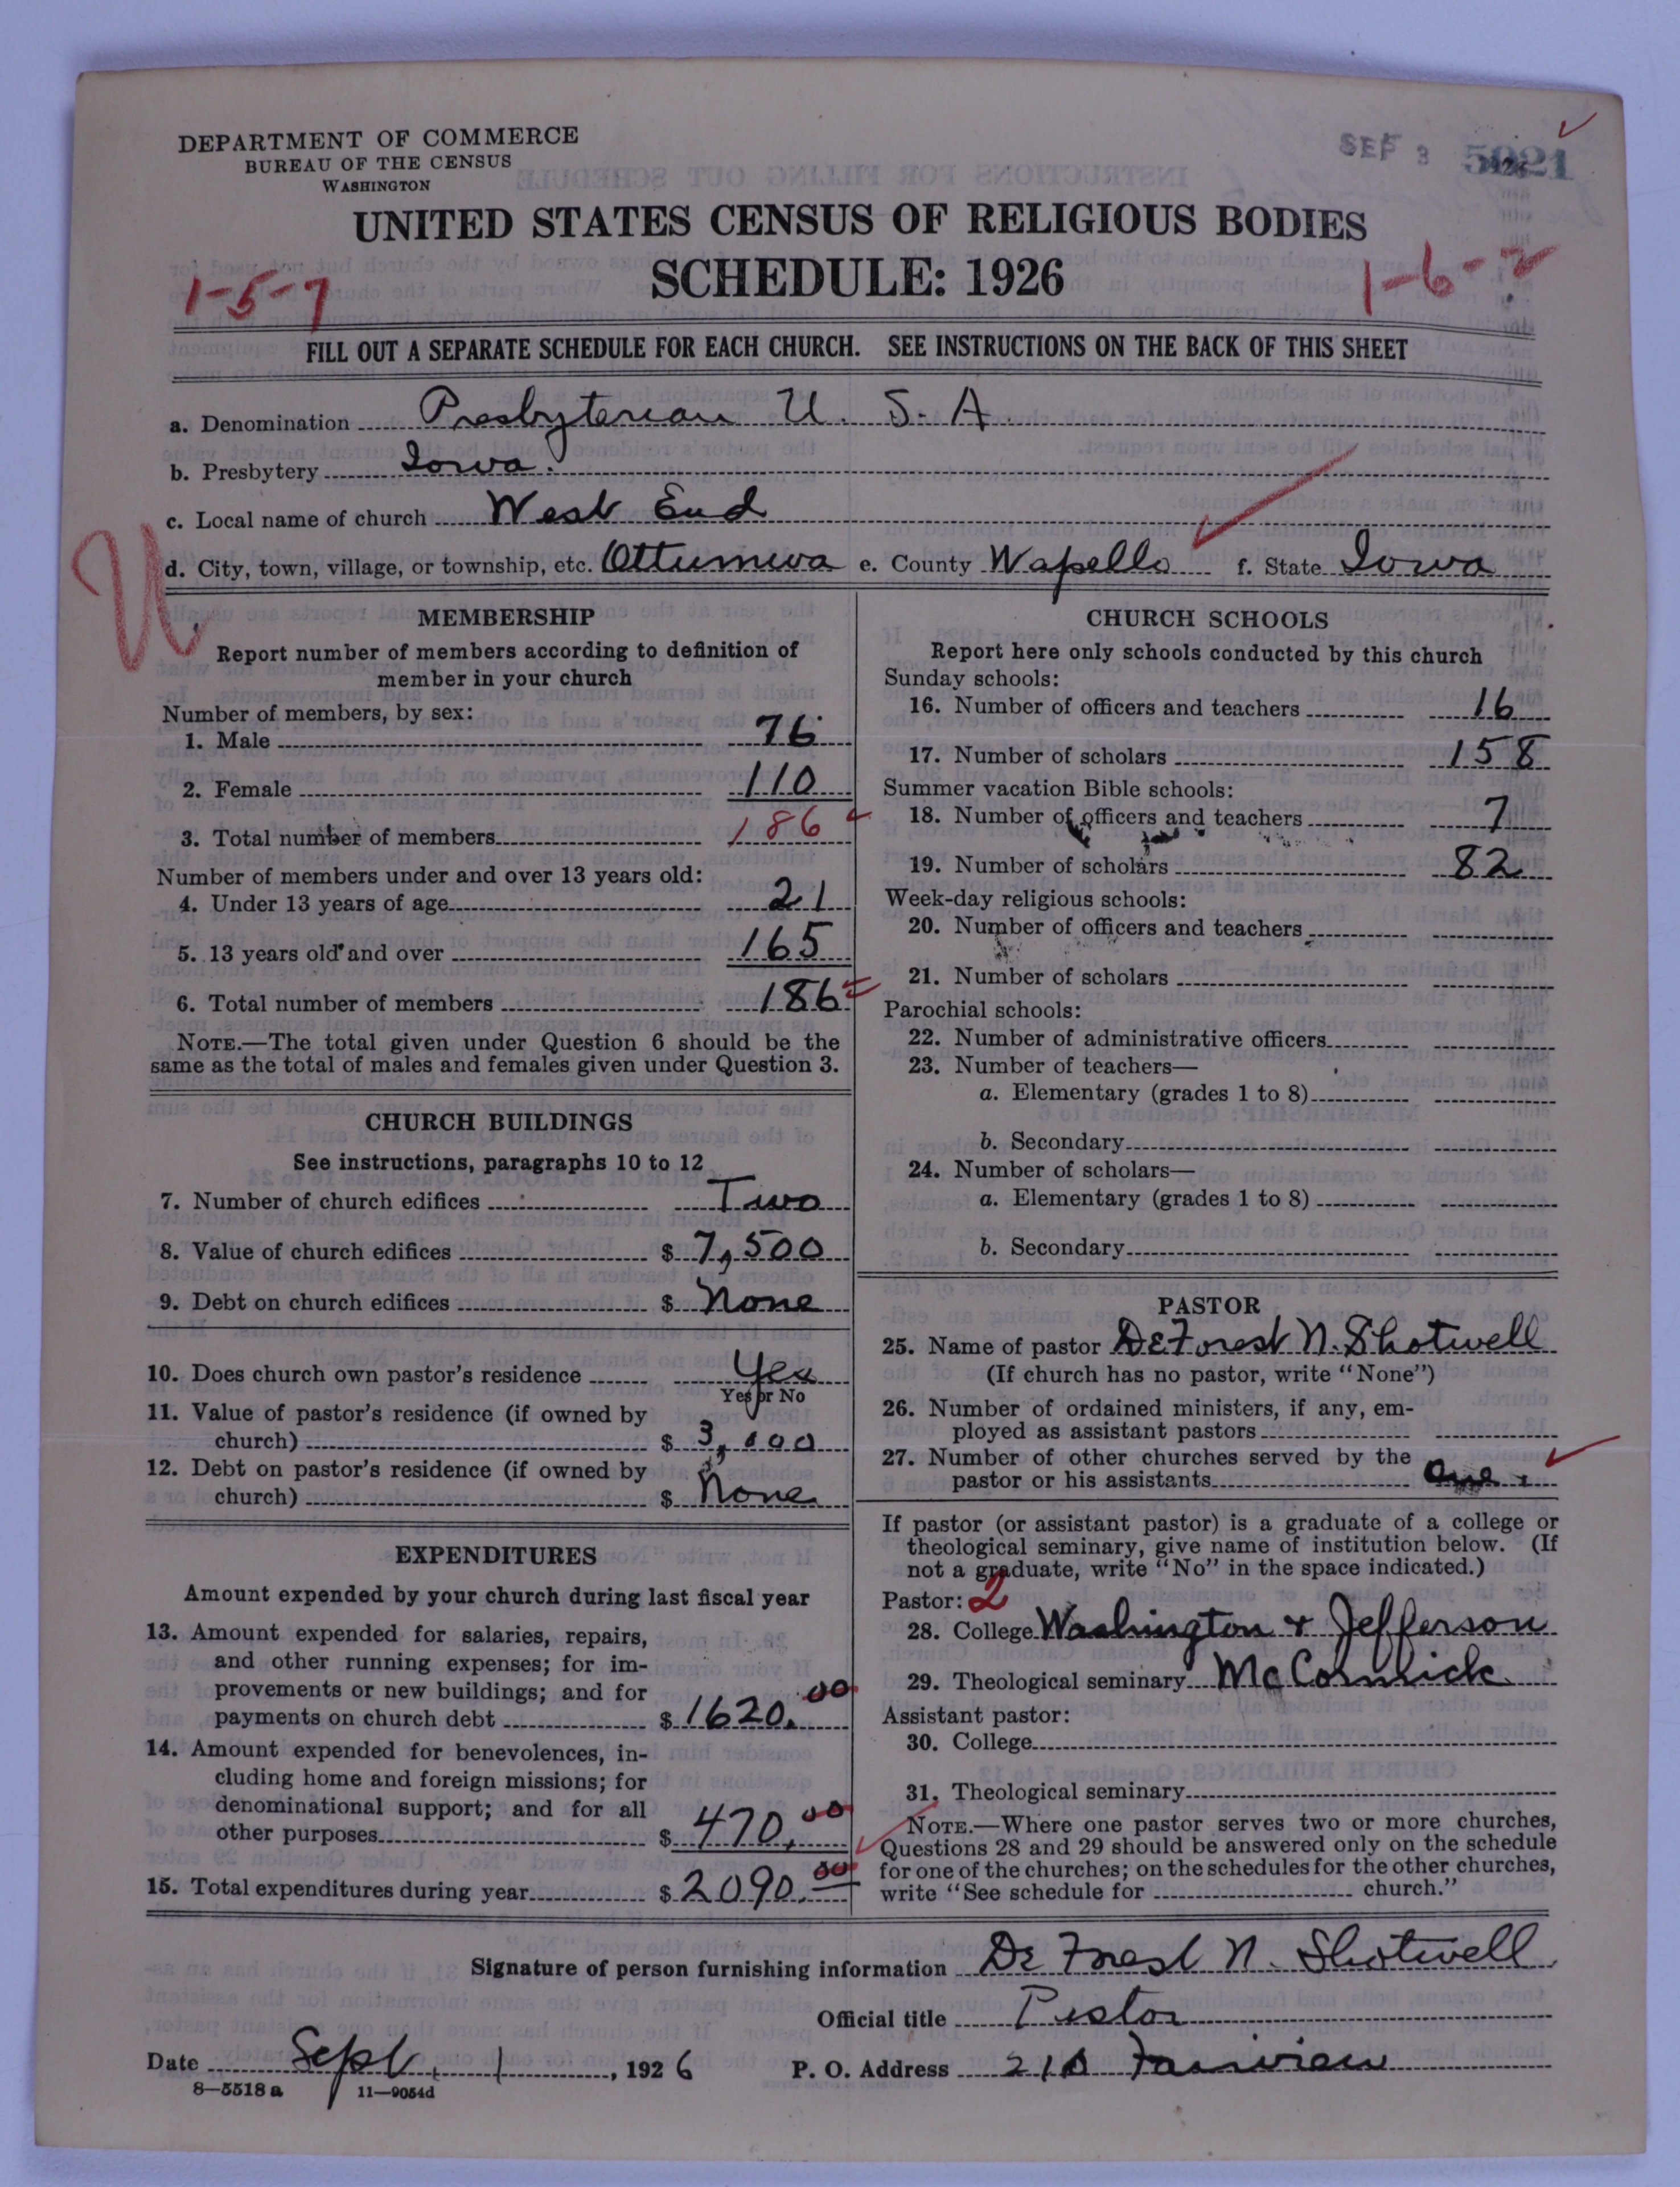 DEPARTMENT OF COMMERCE
BUREAU OF THE CENSUS
WASHINGTON
SEP 3
5021
UNITED STATES CENSUS OF RELIGIOUS BODIES
SCHEDULE: 1926
1-5-7
1-6-2
FILL OUT A SEPARATE SCHEDULE FOR EACH CHURCH. SEE INSTRUCTIONS ON THE BACK OF THIS SHEET
a. Denomination Presbyterian U. S. A
b. Presbytery Iowa.
c. Local name of church West End
d. City, town, village, or township, etc. Ottumwa e. County Wapello f. State Iowa
U
MEMBERSHIP
Report number of members according to definition of
member in your church
Number of members, by sex:
1. Male 76
2. Female 110
3. Total number of members 186
Number of members under and over 13 years old:
4. Under 13 years of age 21
5. 13 years old and over 165
6. Total number of members 186
NOTE.—The total given under Question 6 should be the
same as the total of males and females given under Question 3.
CHURCH BUILDINGS
See instructions, paragraphs 10 to 12
7. Number of church edifices Two
8. Value of church edifices $ 7,500
9. Debt on church edifices $ None
10. Does church own pastor's residence Yes
Yes or No
11. Value of pastor's residence (if owned by
church) $ 3,000
12. Debt on pastor's residence (if owned by
church) $ None
EXPENDITURES
Amount expended by your church during last fiscal year
13. Amount expended for salaries, repairs,
and other running expenses; for im-
provements or new buildings; and for
payments on church debt $ 1620.00
14. Amount expended for benevolences, in-
cluding home and foreign missions; for
denominational support; and for all
other purposes $ 470.00
15. Total expenditures during year $ 2090.00
CHURCH SCHOOLS
Report here only schools conducted by this church
Sunday schools:
16. Number of officers and teachers 16
17. Number of scholars 158
Summer vacation Bible schools:
18. Number of officers and teachers 7
19. Number of scholars 82
Week-day religious schools:
20. Number of officers and teachers
21. Number of scholars
Parochial schools:
22. Number of administrative officers
23. Number of teachers—
a. Elementary (grades 1 to 8)
b. Secondary
24. Number of scholars—
a. Elementary (grades 1 to 8)
b. Secondary
PASTOR
25. Name of pastor DeForest N. Shotwell
(If church has no pastor, write "None")
26. Number of ordained ministers, if any, em-
ployed as assistant pastors
27. Number of other churches served by the
pastor or his assistants One.
If pastor (or assistant pastor) is a graduate of a college or
theological seminary, give name of institution below. (If
not a graduate, write "No" in the space indicated.)
Pastor: 2
28. College Washington & Jefferson
29. Theological seminary McCormick
Assistant pastor:
30. College
31. Theological seminary
NOTE.—Where one pastor serves two or more churches,
Questions 28 and 29 should be answered only on the schedule
for one of the churches; on the schedules for the other churches,
write "See schedule for church."
Signature of person furnishing information De Forest N. Shotwell
Official title Pastor
Date Sept. 1, 1926 P. O. Address Fairview
8—5518 a 11—9054d